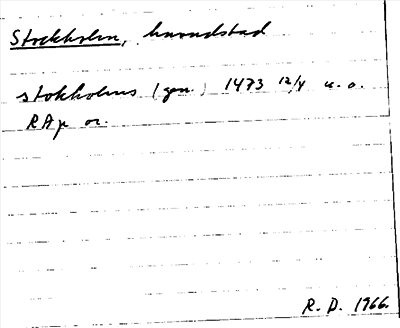 Stockholm, huvudstad
stokholms (gen.) 1473 12/4 u. o.
RAp or.
R. D. 1966.